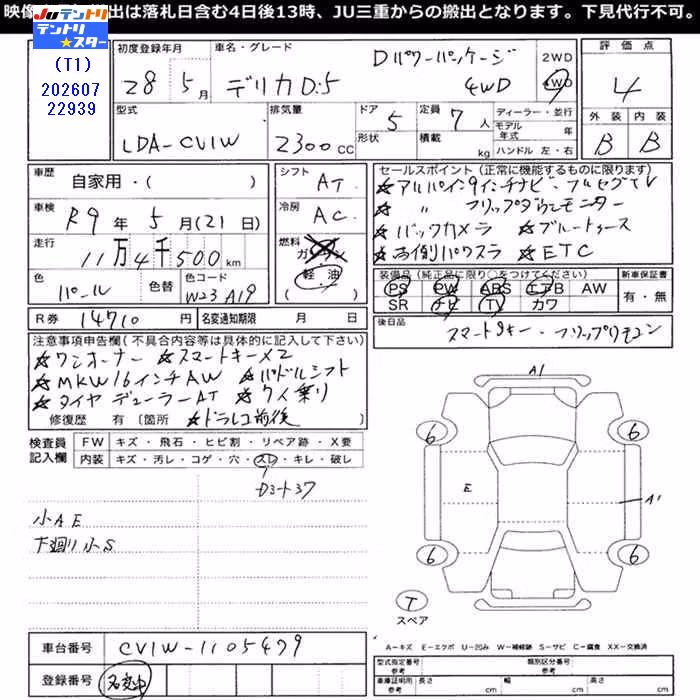 映像 出は落札日含む4日後13時、JU三重からの搬出となります。下見代行不可。
JUテントリ
テントリ★スター
(T1)
202607
22939
初度登録年月 車名・グレード
28 5月 デリカD:5 Dパワーパッケージ 4WD 2WD 4WD
評価点 4
外装 内装
B B
型式 排気量 ドア 定員 ディーラー・並行
LDA-CV1W 2300CC 5 7人
形状 積載 kg
モデル年式 年
ハンドル 左・右
車歴 自家用・( )
シフト AT
車検 R9年5月(21日)
冷房 AC
走行 11万4千500km
燃料 ガソリン 軽油 ( )
色 パール 色替 色コード W23 A19
R券 14710円 名変通知期限 月 日
セールスポイント(正常に機能するものに限ります)
★アルパイン9インチナビ・フルセグTV
★ 〃 フリップダウンモニター
★バックカメラ ★ブルートゥース
★両側パワスラ ★ETC
装備品(純正品に限り○をつけてください) 新車保証書
PS PW ABS エアB AW 有・無
SR ナビ TV カワ
後日品 スマートキー・フリップリモコン
注意事項申告欄(不具合内容等は具体的に記入して下さい)
★ワンオーナー ★スマートキー×2
★MKW16インチAW ★パドルシフト
★タイヤ デューラーAT ★7人乗り
修復歴 有〔箇所 ★ドラレコ前後
検査員 記入欄
FW キズ・飛石・ヒビ割・リペア跡・X要
内装 キズ・汚レ・コゲ・穴・スレ・キレ・破レ
Dシートスレ
小AE
下廻り小S
A1
6 6
E A1
6 6
T
スペア
A-キズ E-エクボ U-凹み W-補修跡 S-サビ C-腐食 XX-交換済
車台番号 CV1W-1105479
登録番号 名変中
型式指定番号 参考 類別区分番号 参考
車庫証明用 参考 長さ cm 幅 cm 高さ cm